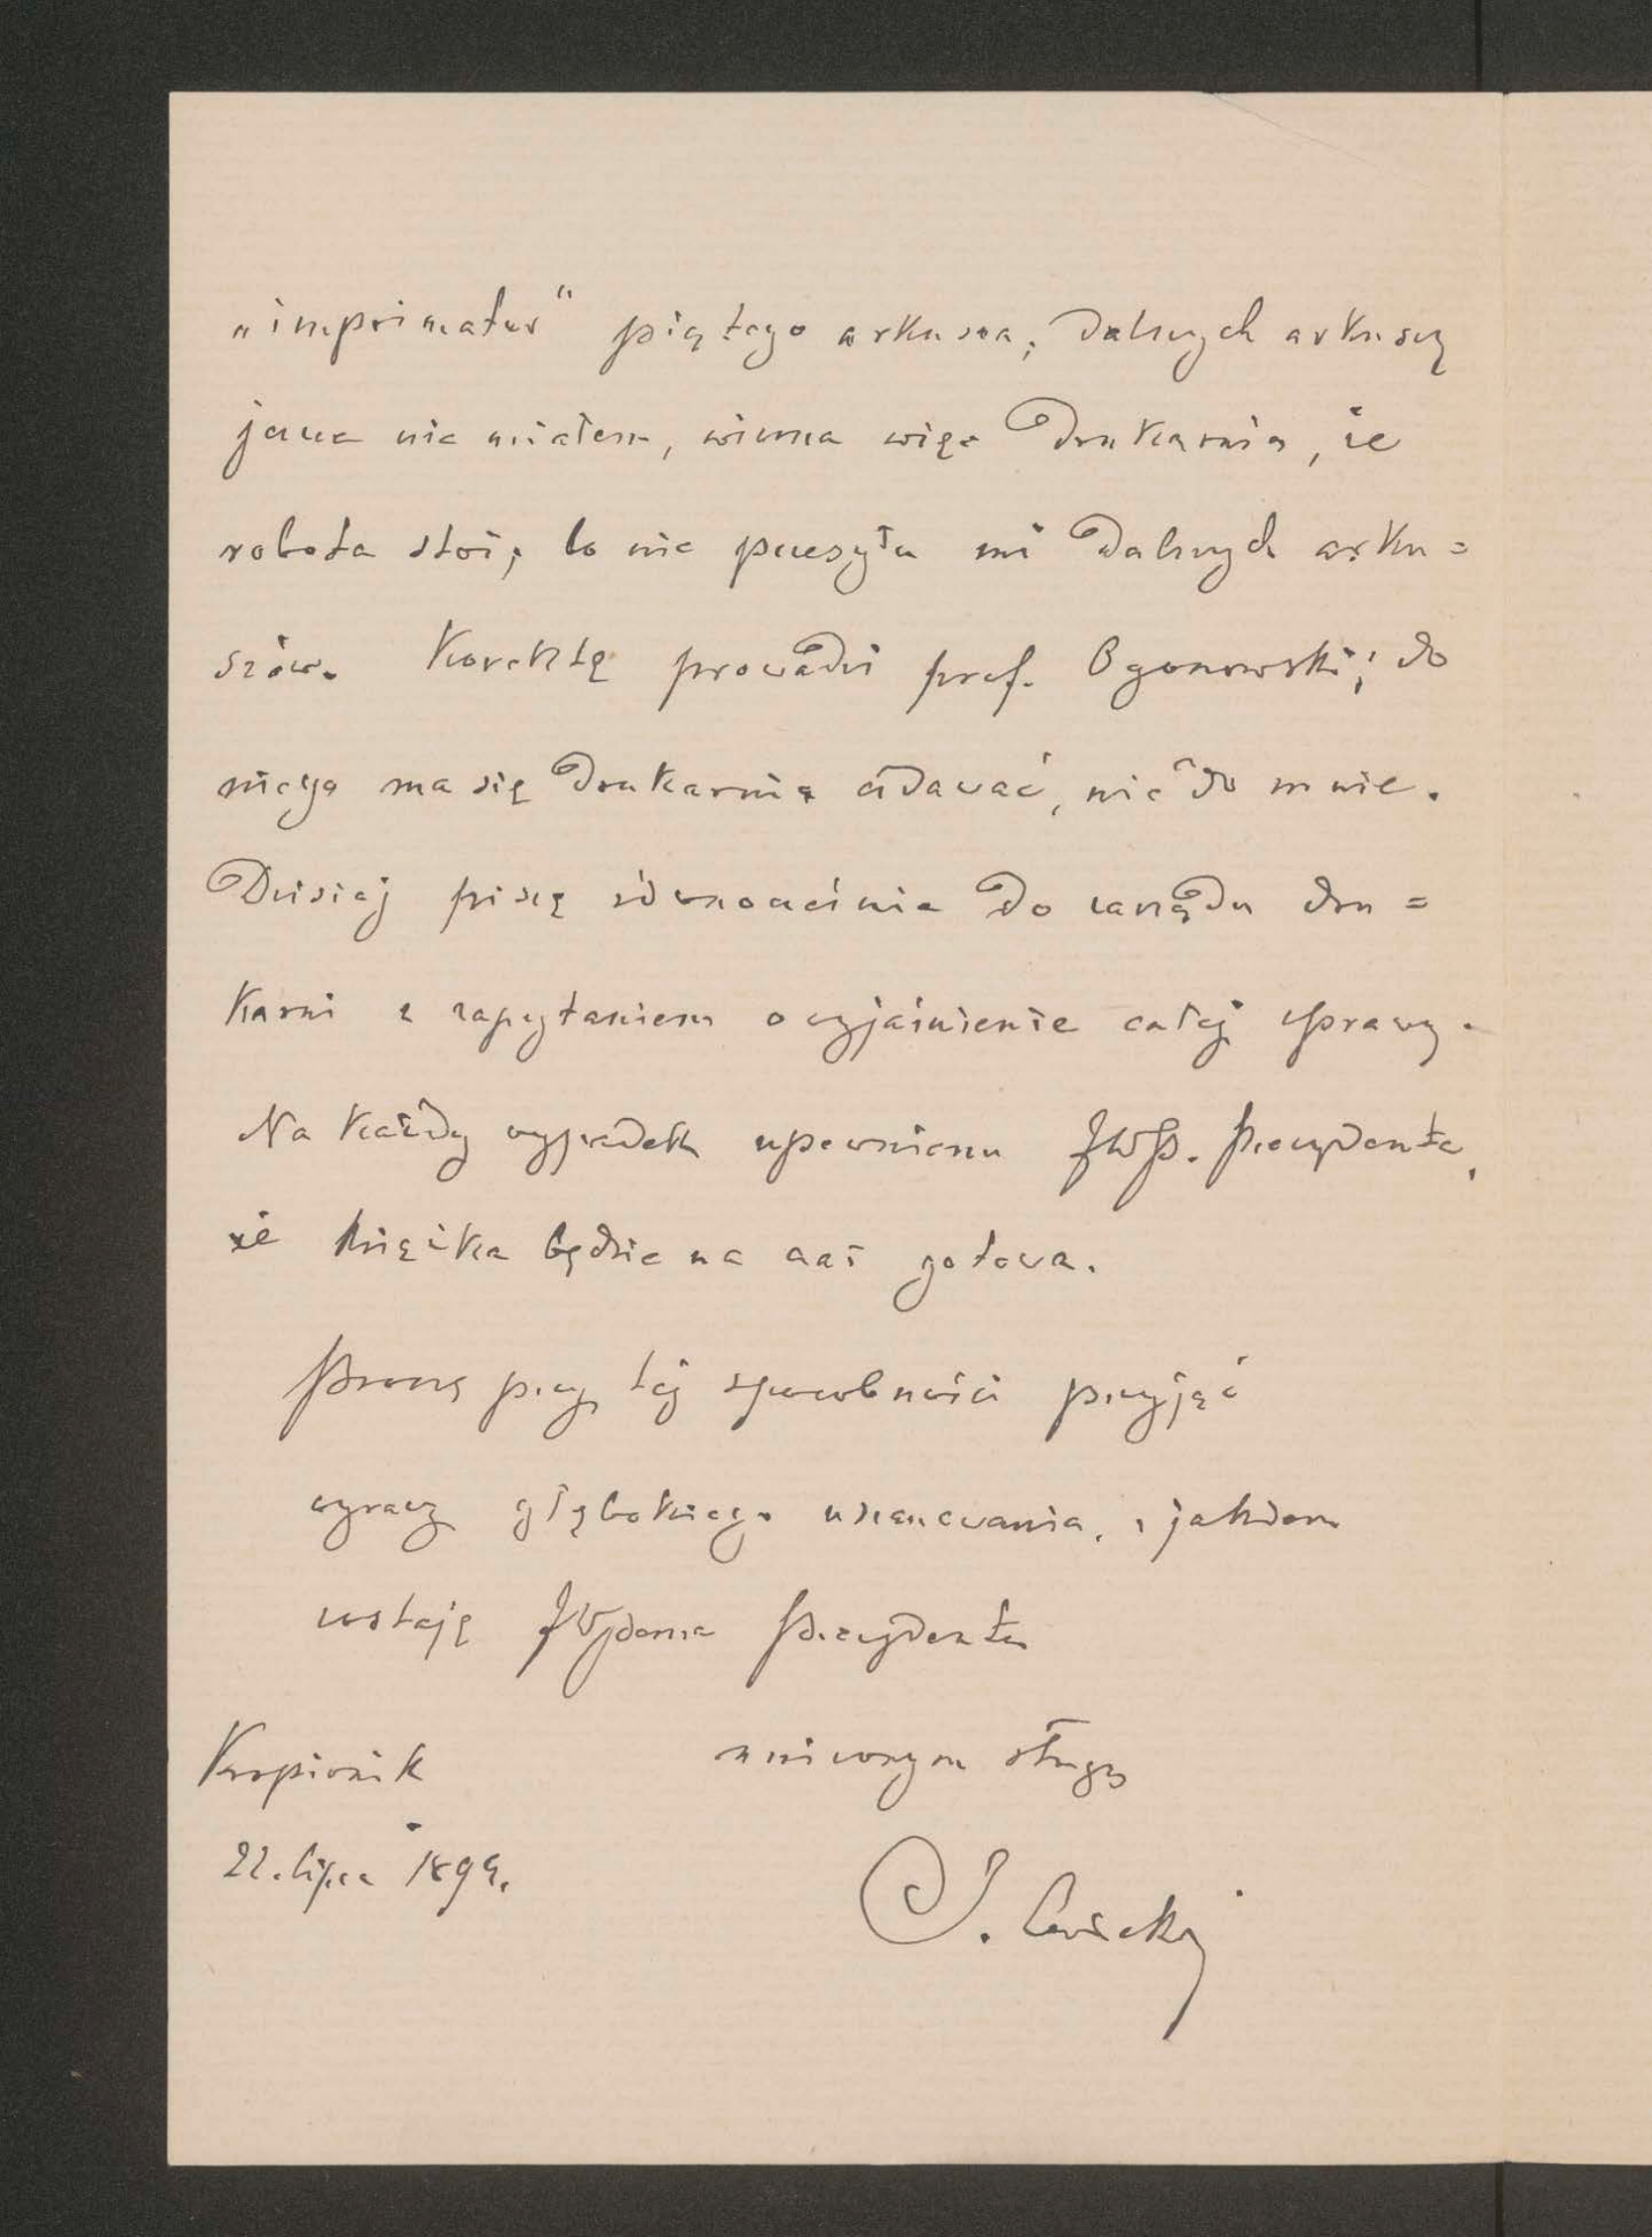 „imprimatur“ piątego arkusza; dalszych arkuszy
jeszcze nie miałem, winna więc drukarnia, że
robota stoi, bo nie przesyła mi dalszych arku=
szów. Korektę prowadzi prof. Ogonowski; do
niego ma się drukarnia udawać, nie do mnie.
Dzisiaj piszę równocześnie do zarządu dru=
karni z zapytaniem o wyjaśnienie całej sprawy.
Na każdy wypadek upewniam JWP. Prezydenta,
że książka będzie na czas gotowa.
Proszę przy tej sposobności przyjąć
wyrazy głębokiego uszanowania, z jakiem
zostaję JWgo Pana Prezydenta
Kropiwnik uniżonym sługą
22. lipca 189